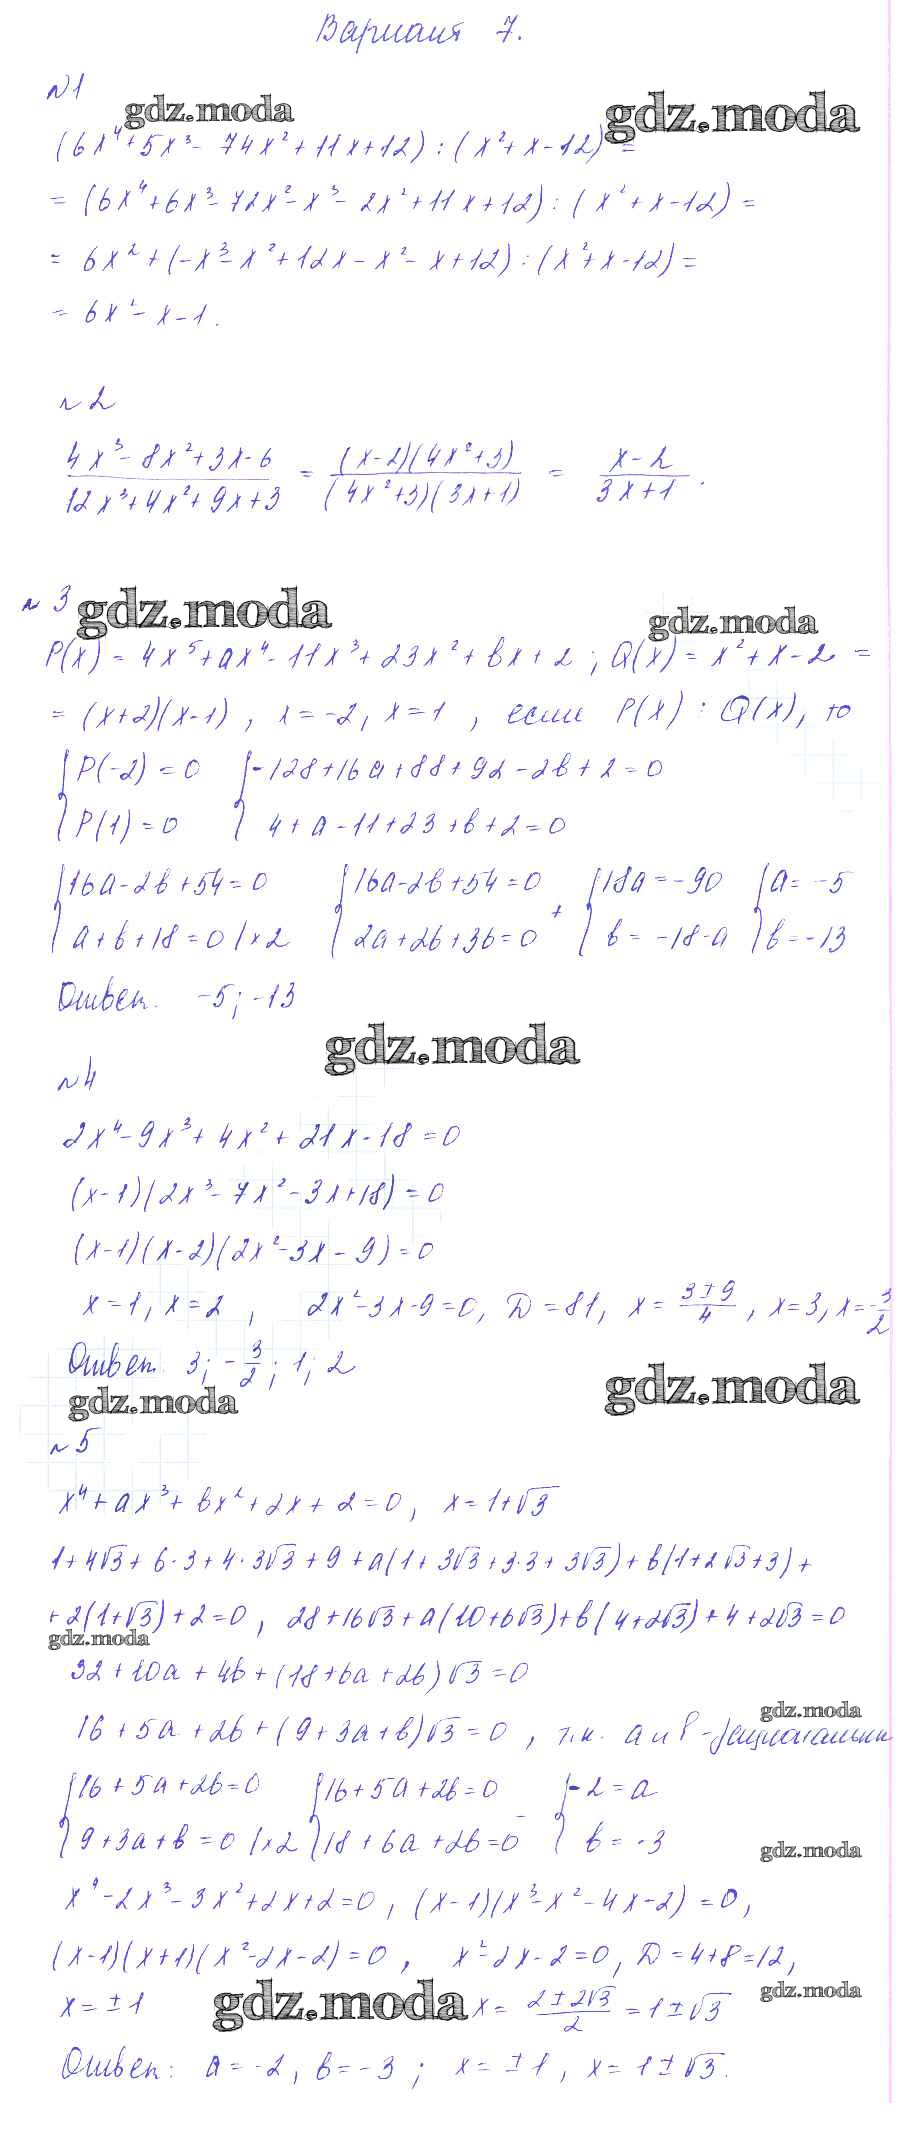 Вариант 7.
№1
gdz.moda gdz.moda
(6x⁴+5x³-74x²+11x+12):(x²+x-12)=
=(6x⁴+6x³-72x²-x³-2x²+11x+12):(x²+x-12)=
=6x²+(-x³-x²+12x-x²-x+12):(x²+x-12)=
=6x²-x-1.
№2
(4x³-8x²+3x-6)/(12x³+4x²+9x+3) = ((x-2)(4x²+3))/((4x²+3)(3x+1)) = (x-2)/(3x+1).
№3
gdz.moda gdz.moda
P(x)=4x⁵+ax⁴-11x³+23x²+bx+2; Q(x)=x²+x-2=
=(x+2)(x-1), x=-2, x=1, если P(x):Q(x), то
{P(-2)=0 {-128+16a+88+92-2b+2=0
{P(1)=0 { 4+a-11+23+b+2=0
{16a-2b+54=0 {16a-2b+54=0 + {18a=-90 {a=-5
{a+b+18=0 |×2 {2a+2b+36=0 {b=-18-a {b=-13
Ответ. -5; -13
gdz.moda
№4
2x⁴-9x³+4x²+21x-18=0
(x-1)(2x³-7x²-3x+18)=0
(x-1)(x-2)(2x²-3x-9)=0
x=1, x=2, 2x²-3x-9=0, D=81, x=(3±9)/4, x=3, x=-3/2
Ответ. 3; -3/2; 1; 2
gdz.moda gdz.moda
№5
x⁴+ax³+bx²+2x+2=0, x=1+√3
1+4√3+6·3+4·3√3+9+a(1+3√3+3·3+3√3)+b(1+2√3+3)+
+2(1+√3)+2=0, 28+16√3+a(10+6√3)+b(4+2√3)+4+2√3=0
gdz.moda
32+10a+4b+(18+6a+2b)√3=0
gdz.moda
16+5a+2b+(9+3a+b)√3=0, т.к. a и b-рациональны
{16+5a+2b=0 {16+5a+2b=0 - {-2=a
{9+3a+b=0 |×2 {18+6a+2b=0 {b=-3
gdz.moda
x⁴-2x³-3x²+2x+2=0, (x-1)(x³-x²-4x-2)=0,
(x-1)(x+1)(x²-2x-2)=0, x²-2x-2=0, D=4+8=12,
gdz.moda gdz.moda
x=±1 x=(2±2√3)/2=1±√3
Ответ: a=-2, b=-3; x=±1, x=1±√3.